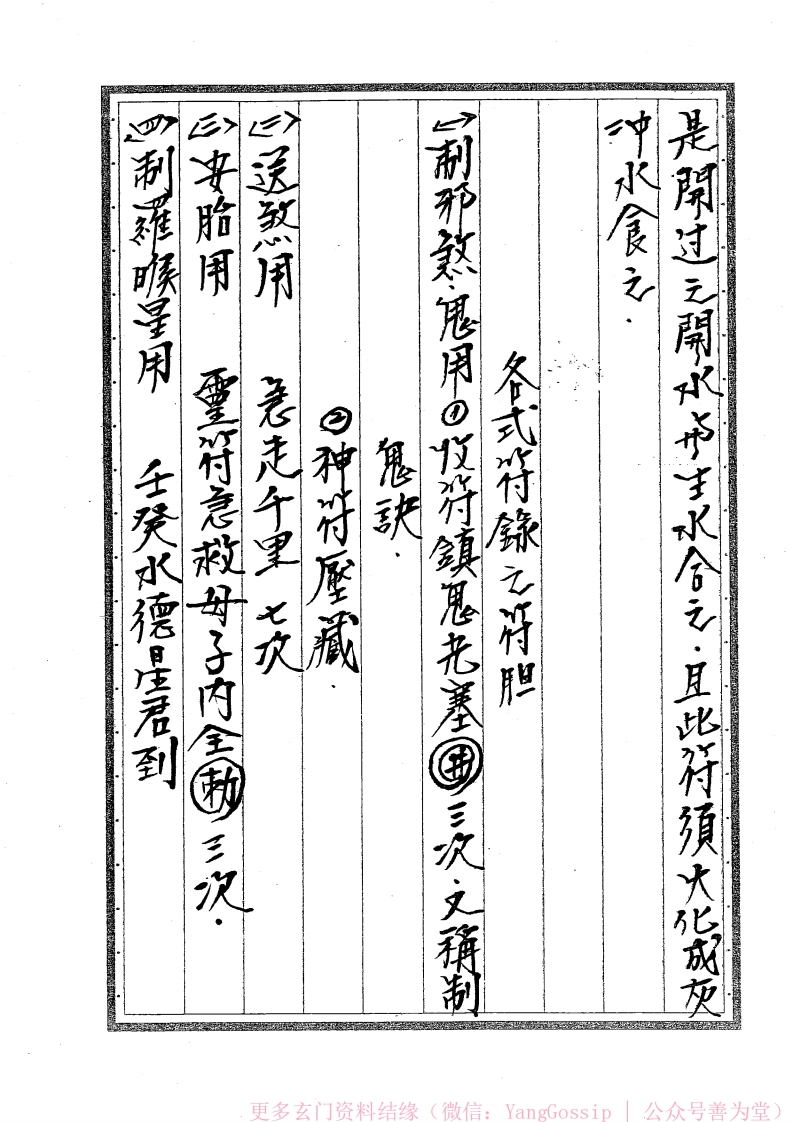 是開过之開水与生水合之．且此符須火化成灰
冲水食之．
各式符錄之符胆
㈠制邪煞．鬼用①收符鎮鬼老塞㊉三次．又稱制
鬼訣．
②神符壓藏．
㈡送煞用　急走千里七次
㈢安胎用　靈符急救母子內全勅三次．
㈣制羅睺星用　壬癸水德星君到
更多玄门资料结缘（微信：YangGossip | 公众号善为堂）